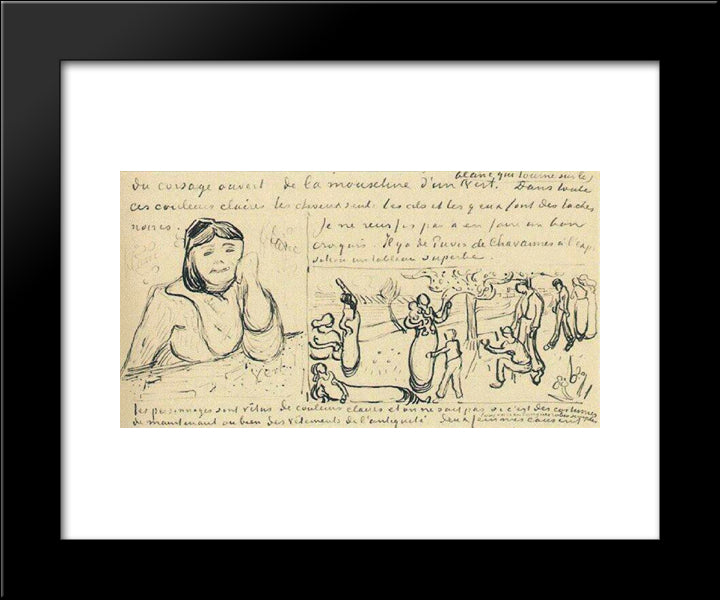 blanc qui tourne sur le
du corsage ouvert de la mousseline d'un vert. Dans toute
ces couleurs claires les cheveux seuls les cils et les yeux font des taches
noires.
Je ne reussis pas a en faire un bon
croquis. Il y a de Puvis de Chavannes à l'exp
osition un tableau superbe.
Vert
les personnages sont vêtus de couleurs claires et on ne sait pas si c'est des costumes
de maintenant ou bien des vêtements de l'antiquité deux femmes causent